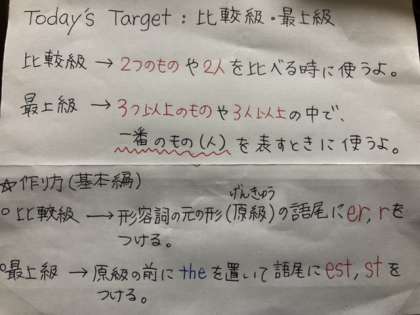 Today's Target：比較級・最上級
比較級 → 2つのものや2人を比べる時に使うよ。
最上級 → 3つ以上のものや3人以上の中で、
一番のもの(人)を表すときに使うよ。
☆作り方(基本編)
げんきゅう
○比較級 → 形容詞の元の形(原級)の語尾にer, rを
つける。
○最上級 → 原級の前にtheを置いて語尾にest, stを
つける。